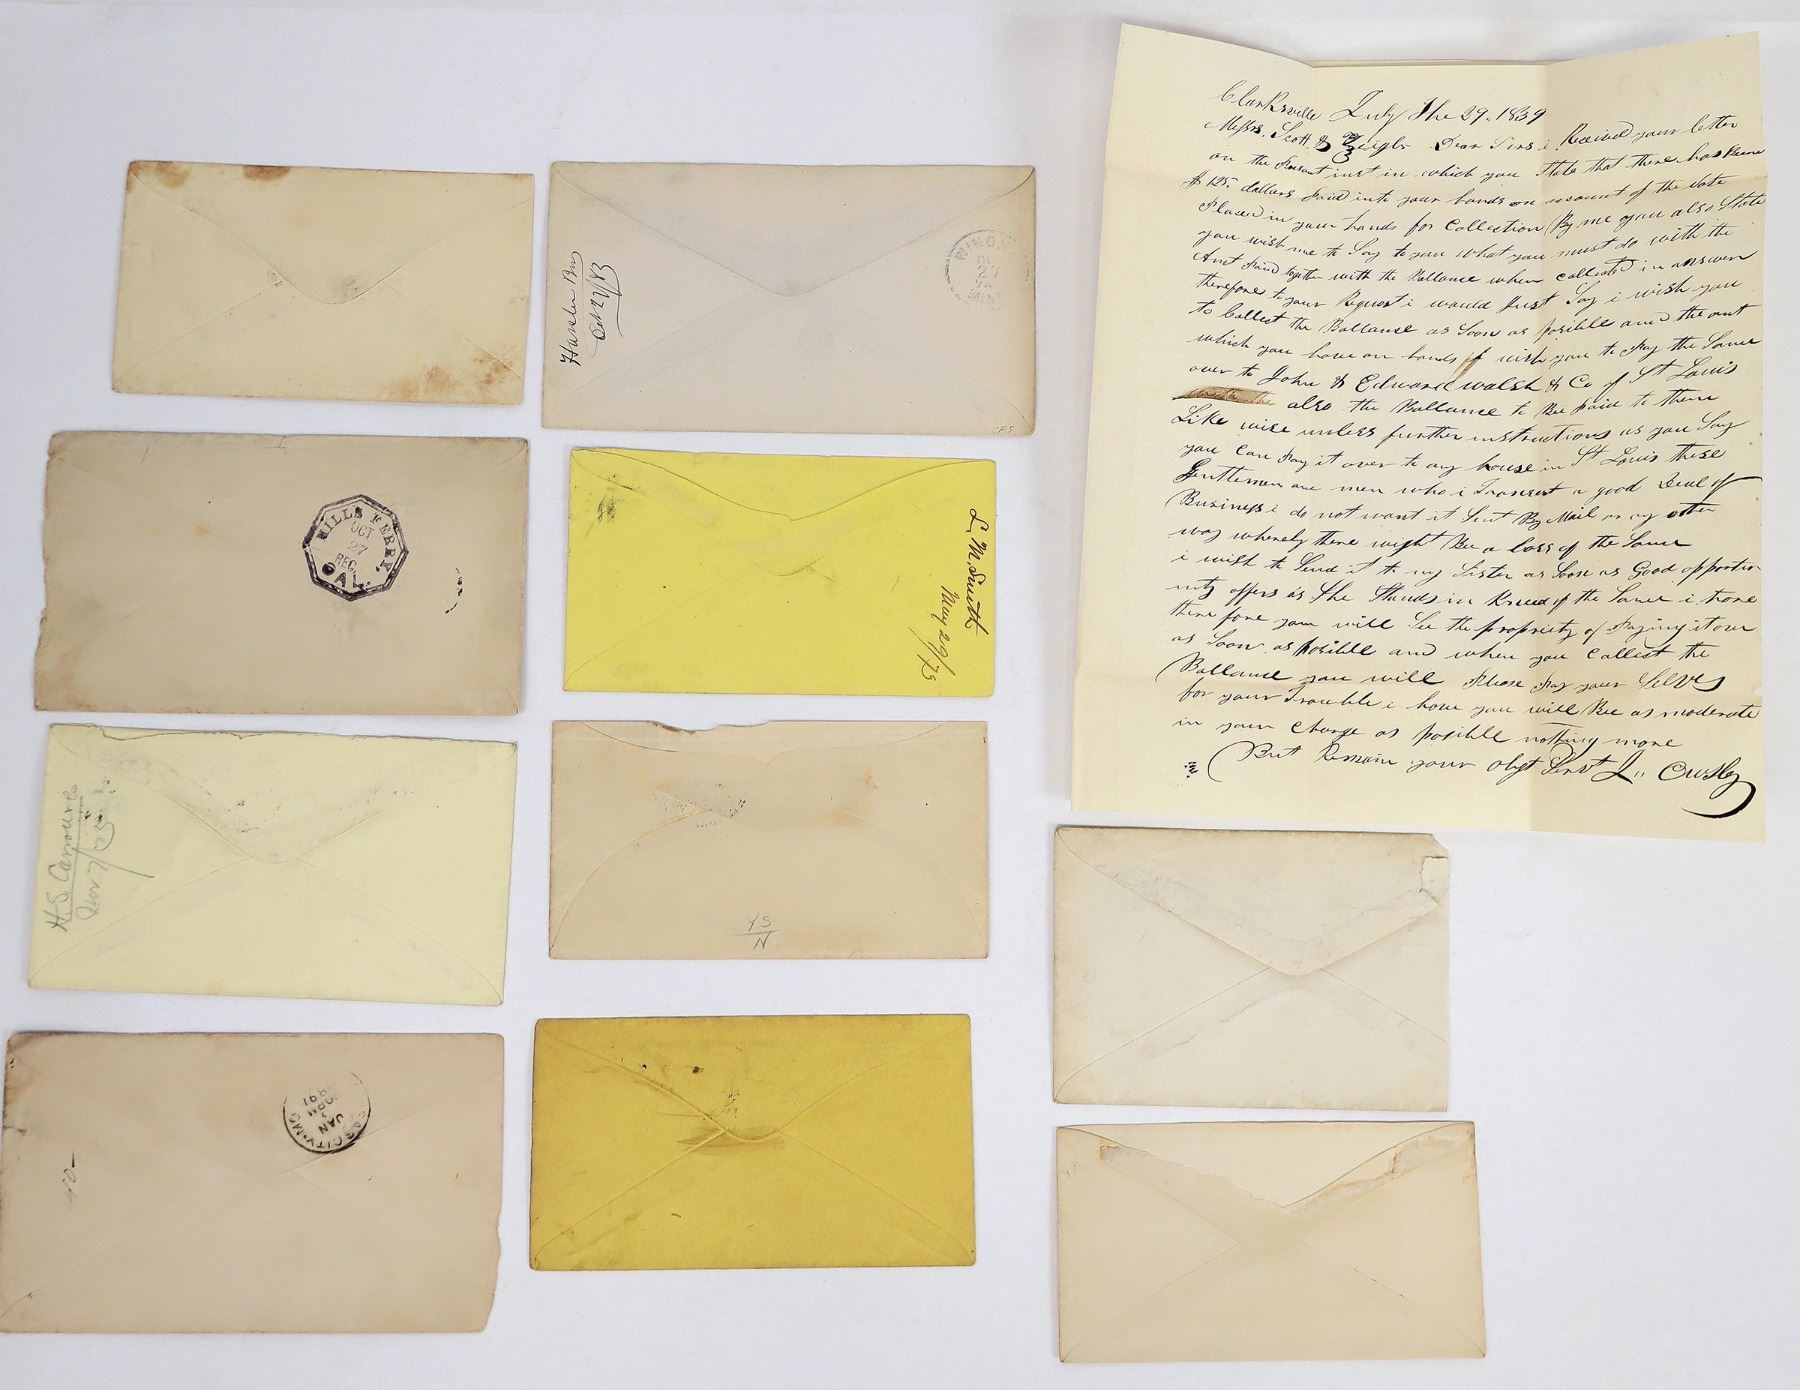 Clarksville July The 29. 1839
Messrs. Scott & Dear Sirs i Received your letter
on the Present inst in which you State that there has Beene
$125. dollars Paid into your hands on account of the Note
Placed in your hands for Collection By me you also State
you wish me to Say to you what you must do with the
Amt Paid together with the Ballance when collected in answer
therefore to your Request i would Just Say i wish you
to Collect the Ballance as Soon as posible and the amt
which you have on hands i wish you to Pay the Same
over to John & Edward Walsh & Co of St Louis
also the Ballance to Bee paid to them
Like wise unless further instructions as you Say
you can Pay it over to any house in St Louis these
Gentlemen are men who i Transact a good Deal of
Business i do not want it Sent By Mail or any other
way whereby there might Bee a loss of the Same
i wish to Send it to my Sister as Soon as Good opportu
nity offers as She Stands in Kneed of the Same i hope
there fore you will See the propriety of Paying it over
as Soon as posible and when you Collect the
Ballance you will Please Pay your Selves
for your Trouble i hope you will Bee as moderate
in your Charge as posible nothing more
But Remain your obgt Servt
WINONA
27
MINN
HILLS FERRY,
OCT
27
REG.
CAL.
L. M. Smith
May 29/73
H.S.
Nov 7/
YS
N
CITY, MO
JAN
PM
1891
10-